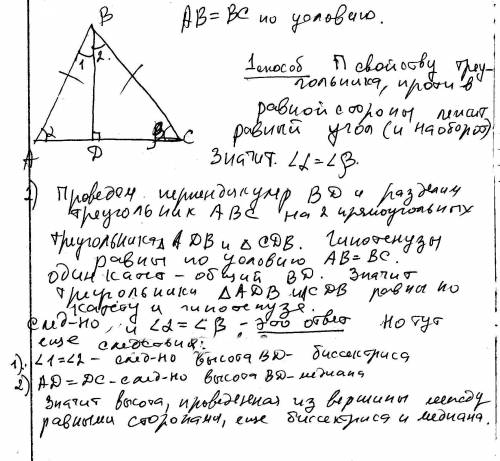 B
AB = BC по условию.
1 2
1 способ П свойству треу-
гольника, против
равной стороны лежит
равный угол (и наоборот)
Значит ∠α = ∠β.
A D C
α β
2) Проведем перпендикуляр BD и разделим
треугольник ABC на 2 прямоугольных
треугольника △ ADB и △ CDB. Гипотенузы
равны по условию AB = BC.
один катет - общий BD. Значит
треугольники △ADB и CDB равны по
катету и гипотенузе.
след-но, и ∠α = ∠β - это ответ но тут
еще следствия:
1). ∠1 = ∠2 - след-но высота BD - биссектриса
2) AD = DC - след-но высота BD - медиана
Значит высота, проведенная из вершины между
равными сторонами, еще биссектриса и медиана.